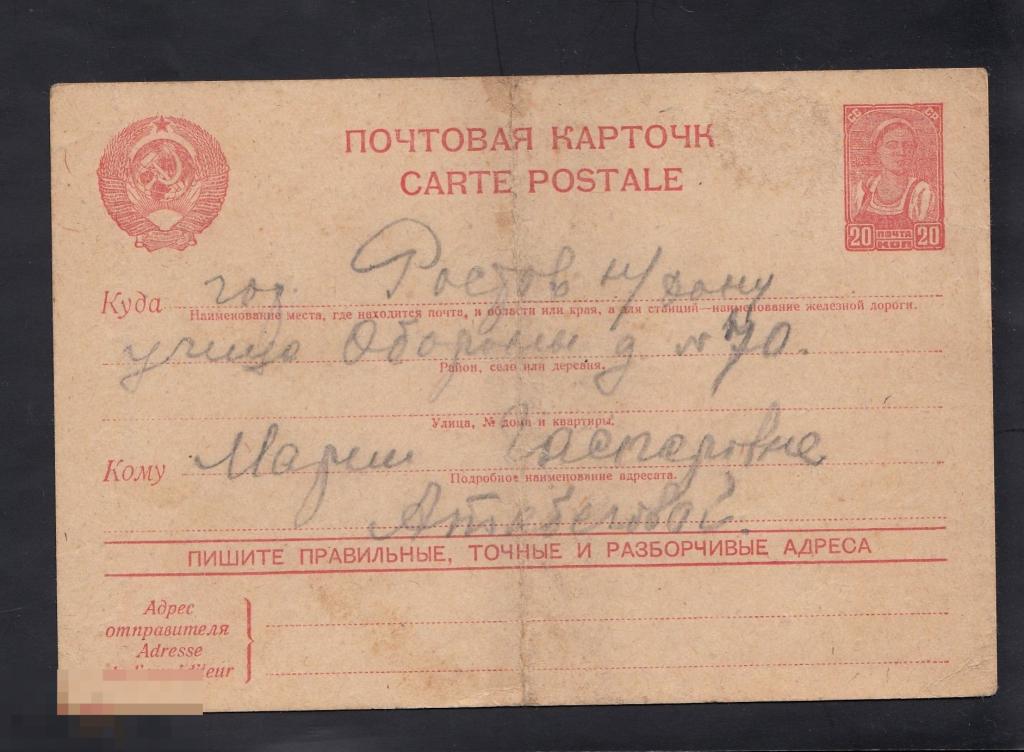 ПОЧТОВАЯ КАРТОЧК
CARTE POSTALE
СС СР
20 ПОЧТА КОП 20
Куда гор. Ростов н/дону
Наименование места, где находится почта, и области или края, а для станций—наименование железной дороги.
улица Обороны д № 70.
Район, село или деревня.
Улица, № дома и квартиры.
Кому Марии Гаспаровне
Подробное наименование адресата.
Атабеговой.
ПИШИТЕ ПРАВИЛЬНЫЕ, ТОЧНЫЕ И РАЗБОРЧИВЫЕ АДРЕСА
Адрес
отправителя
Adresse